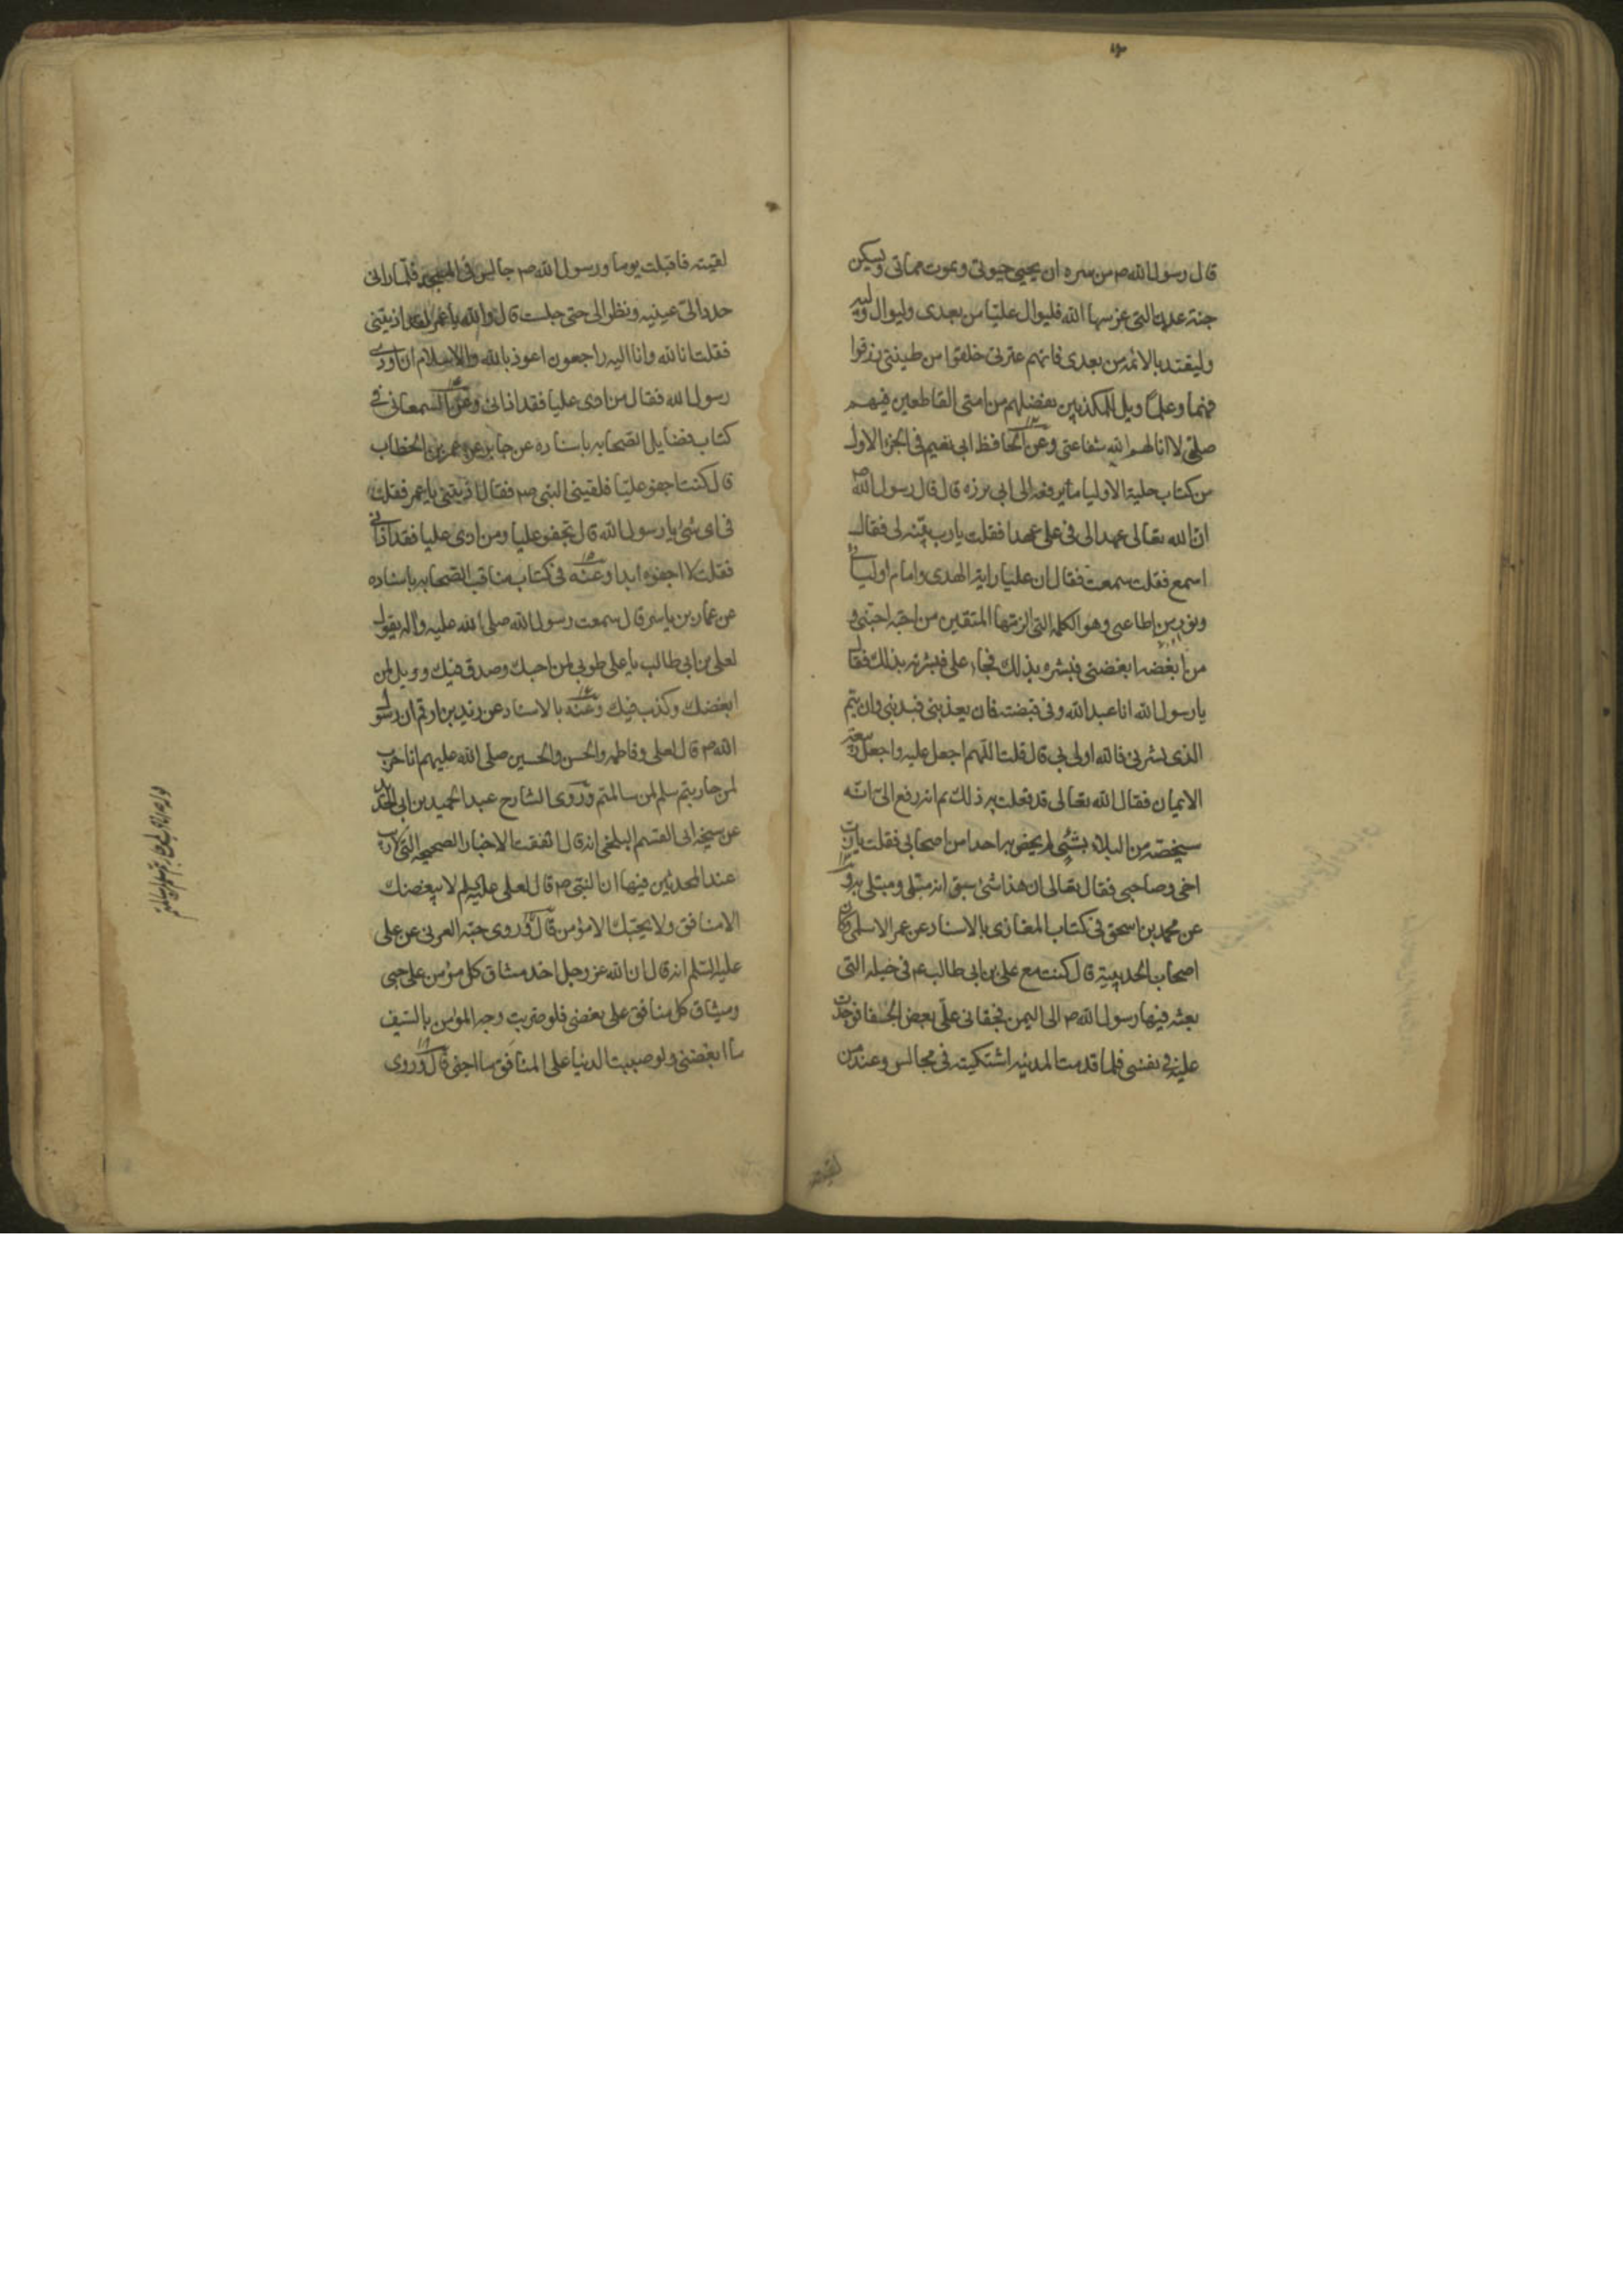 قال رسول الله ص من سره ان يحيى حيوتي ويموت مماتي ويسكن
جنة عدن التي غرسها الله فليوال عليا من بعدى وليوال وليه
وليقتد بالائمه من بعدى فانهم عترتى خلقوا من طينتى رزقوا
فهما وعلما ويل للمكذبين بفضلهم من امتى القاطعين فيهم
صلتى لا انالهم الله شفاعتى وعن الحافظ ابى نعيم فى الجزء الاول
من كتاب حلية الاوليا ما يرفعه الى ابى برزه قال قال رسول الله ص
ان الله تعالى عهد الى فى على عهدا فقلت يا رب بينه لى فقال
اسمع فقلت سمعت فقال ان عليا راية الهدى وامام اوليائى
ونور من اطاعنى وهو الكلمه التى الزمتها المتقين من احبه احبنى و
من ابغضه ابغضنى فبشره بذلك فجاء على فبشرته بذلك فقال
يا رسول الله انا عبد الله وفى قبضته فان يعذبنى فبذنبى وان يتم
الذى بشرنى فالله اولى بى قال قلت اللهم اجعل عليه واجعل ربيعه
الايمان فقال الله تعالى قد فعلت به ذلك ثم انه رفع الى انه
سيخصه من البلاء بشئ لم يخص به احدا من اصحابى فقلت يا رب
اخى وصاحبى فقال تعالى ان هذا شئ سبق انه مبتلى ومبتلى به و
عن محمد بن اسحق فى كتاب المغازى بالاسناد عن عمر الاسلمى وكان
اصحاب الحديبية قال كنت مع على بن ابى طالب ع فى خيله التى
بعثه فيها رسول الله ص الى اليمن فجفانى على بعض الجفا فوجدت
عليه فى نفسى فلما قدمت المدينه اشتكيته فى مجالس وعند من
لقيته
لقيته فاقبلت يوما ورسول الله ص جالس فى المسجد فلما رانى
حدد الى عينيه ونظر الى حتى جلست قال والله يا عمر لقد اذيتنى
فقلت انا لله وانا اليه راجعون اعوذ بالله والاسلام ان اوذى
رسول الله فقال من اذى عليا فقد اذانى وعن السمعانى فى
كتاب فضايل الصحابه باسناده عن جابر عن عمر بن الخطاب
قال كنت اجفو عليا فلقينى النبى ص فقال اذيتنى يا عمر فقلت
فى اى شئ يا رسول الله قال تجفو عليا ومن اذى عليا فقد اذانى
فقلت لا اجفوه ابدا وعنه فى كتاب مناقب الصحابه باسناده
عن عمار بن ياسر قال سمعت رسول الله صلى الله عليه واله يقول
لعلى بن ابى طالب يا على طوبى لمن احبك وصدق فيك وويل لمن
ابغضك وكذب فيك وعنه بالاسناد عن زيد بن ارقم ان رسول
الله ص قال لعلى وفاطمه والحسن والحسين صلى الله عليهم انا حرب
لمن حاربتم سلم لمن سالمتم وروى الشارح عبد الحميد بن ابى الحديد
عن شيخه ابى القسم البلخى انه قال اتفقت الاخبار الصحيحه التى لا ريب
عند المحدثين فيها ان النبى ص قال لعلى عليه السلام لا يبغضك
الا منافق ولا يحبك الا مؤمن قال وروى حبه العرنى عن على
عليه السلم انه قال ان الله عز وجل اخذ ميثاق كل مؤمن على حبى
وميثاق كل منافق على بغضى فلو ضربت وجه المؤمن بالسيف
ما ابغضنى ولو صببت الدنيا على المنافق ما احبنى قال وروى